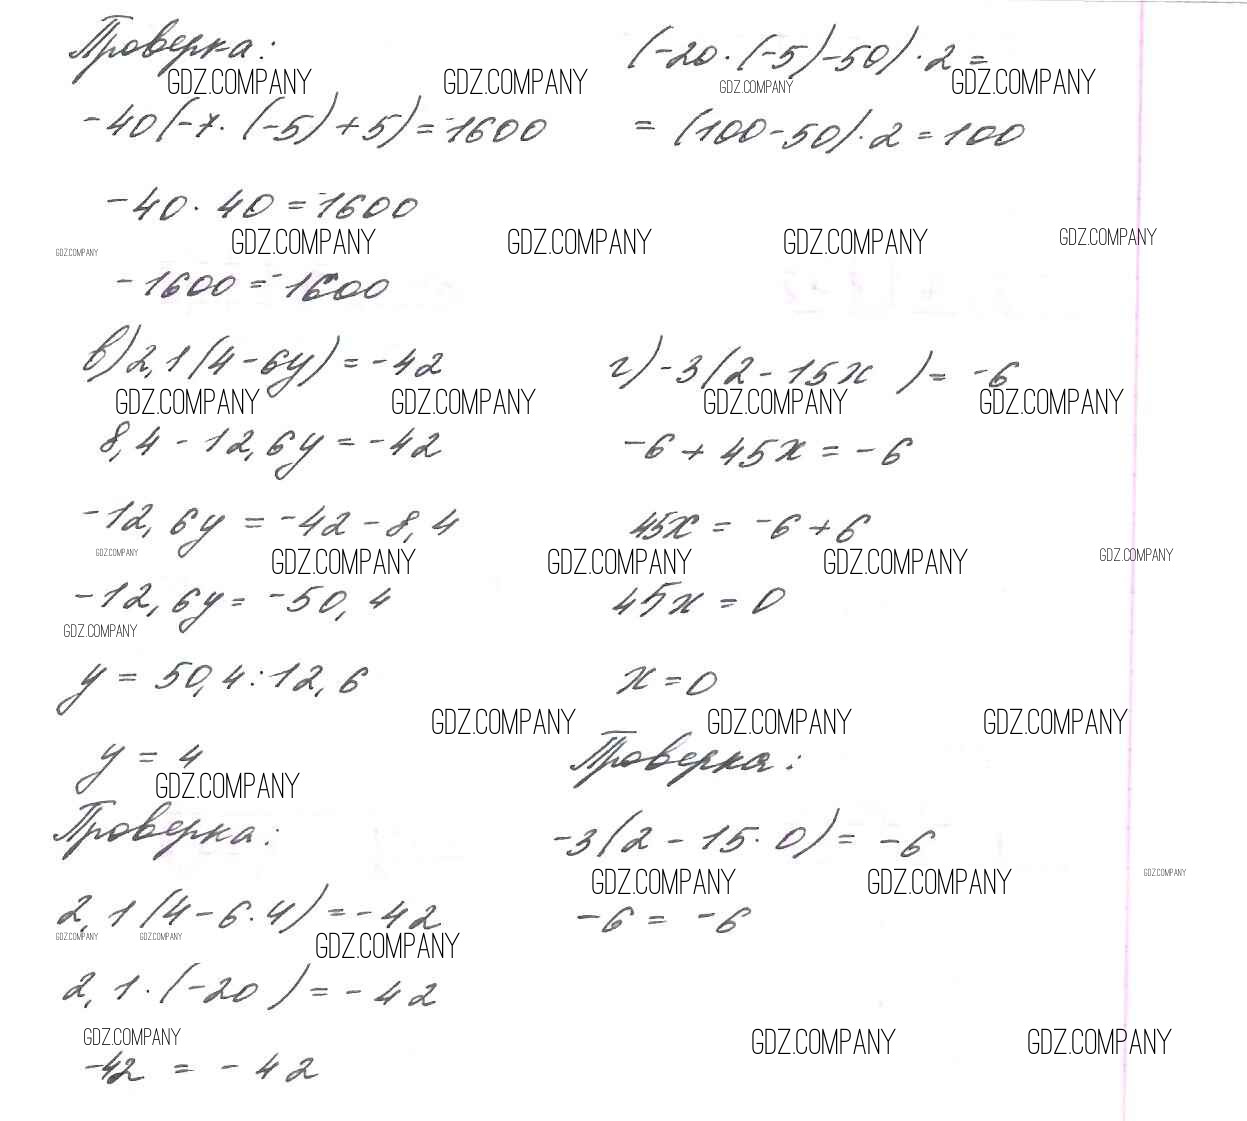 Проверка:
-40(-7·(-5)+5)=-1600
-40·40=-1600
-1600=-1600
(-20·(-5)-50)·2=
=(100-50)·2=100
в)2,1(4-6y)=-42
8,4-12,6y=-42
-12,6y=-42-8,4
-12,6y=-50,4
y=50,4:12,6
y=4
Проверка:
2,1(4-6·4)=-42
2,1·(-20)=-42
-42=-42
г)-3(2-15x)=-6
-6+45x=-6
45x=-6+6
45x=0
x=0
Проверка:
-3(2-15·0)=-6
-6=-6
GDZ.COMPANY GDZ.COMPANY GDZ.COMPANY GDZ.COMPANY
GDZ.COMPANY GDZ.COMPANY GDZ.COMPANY GDZ.COMPANY GDZ.COMPANY
GDZ.COMPANY GDZ.COMPANY GDZ.COMPANY GDZ.COMPANY
GDZ.COMPANY GDZ.COMPANY GDZ.COMPANY GDZ.COMPANY GDZ.COMPANY
GDZ.COMPANY
GDZ.COMPANY GDZ.COMPANY GDZ.COMPANY
GDZ.COMPANY
GDZ.COMPANY GDZ.COMPANY GDZ.COMPANY
GDZ.COMPANY GDZ.COMPANY GDZ.COMPANY
GDZ.COMPANY GDZ.COMPANY GDZ.COMPANY